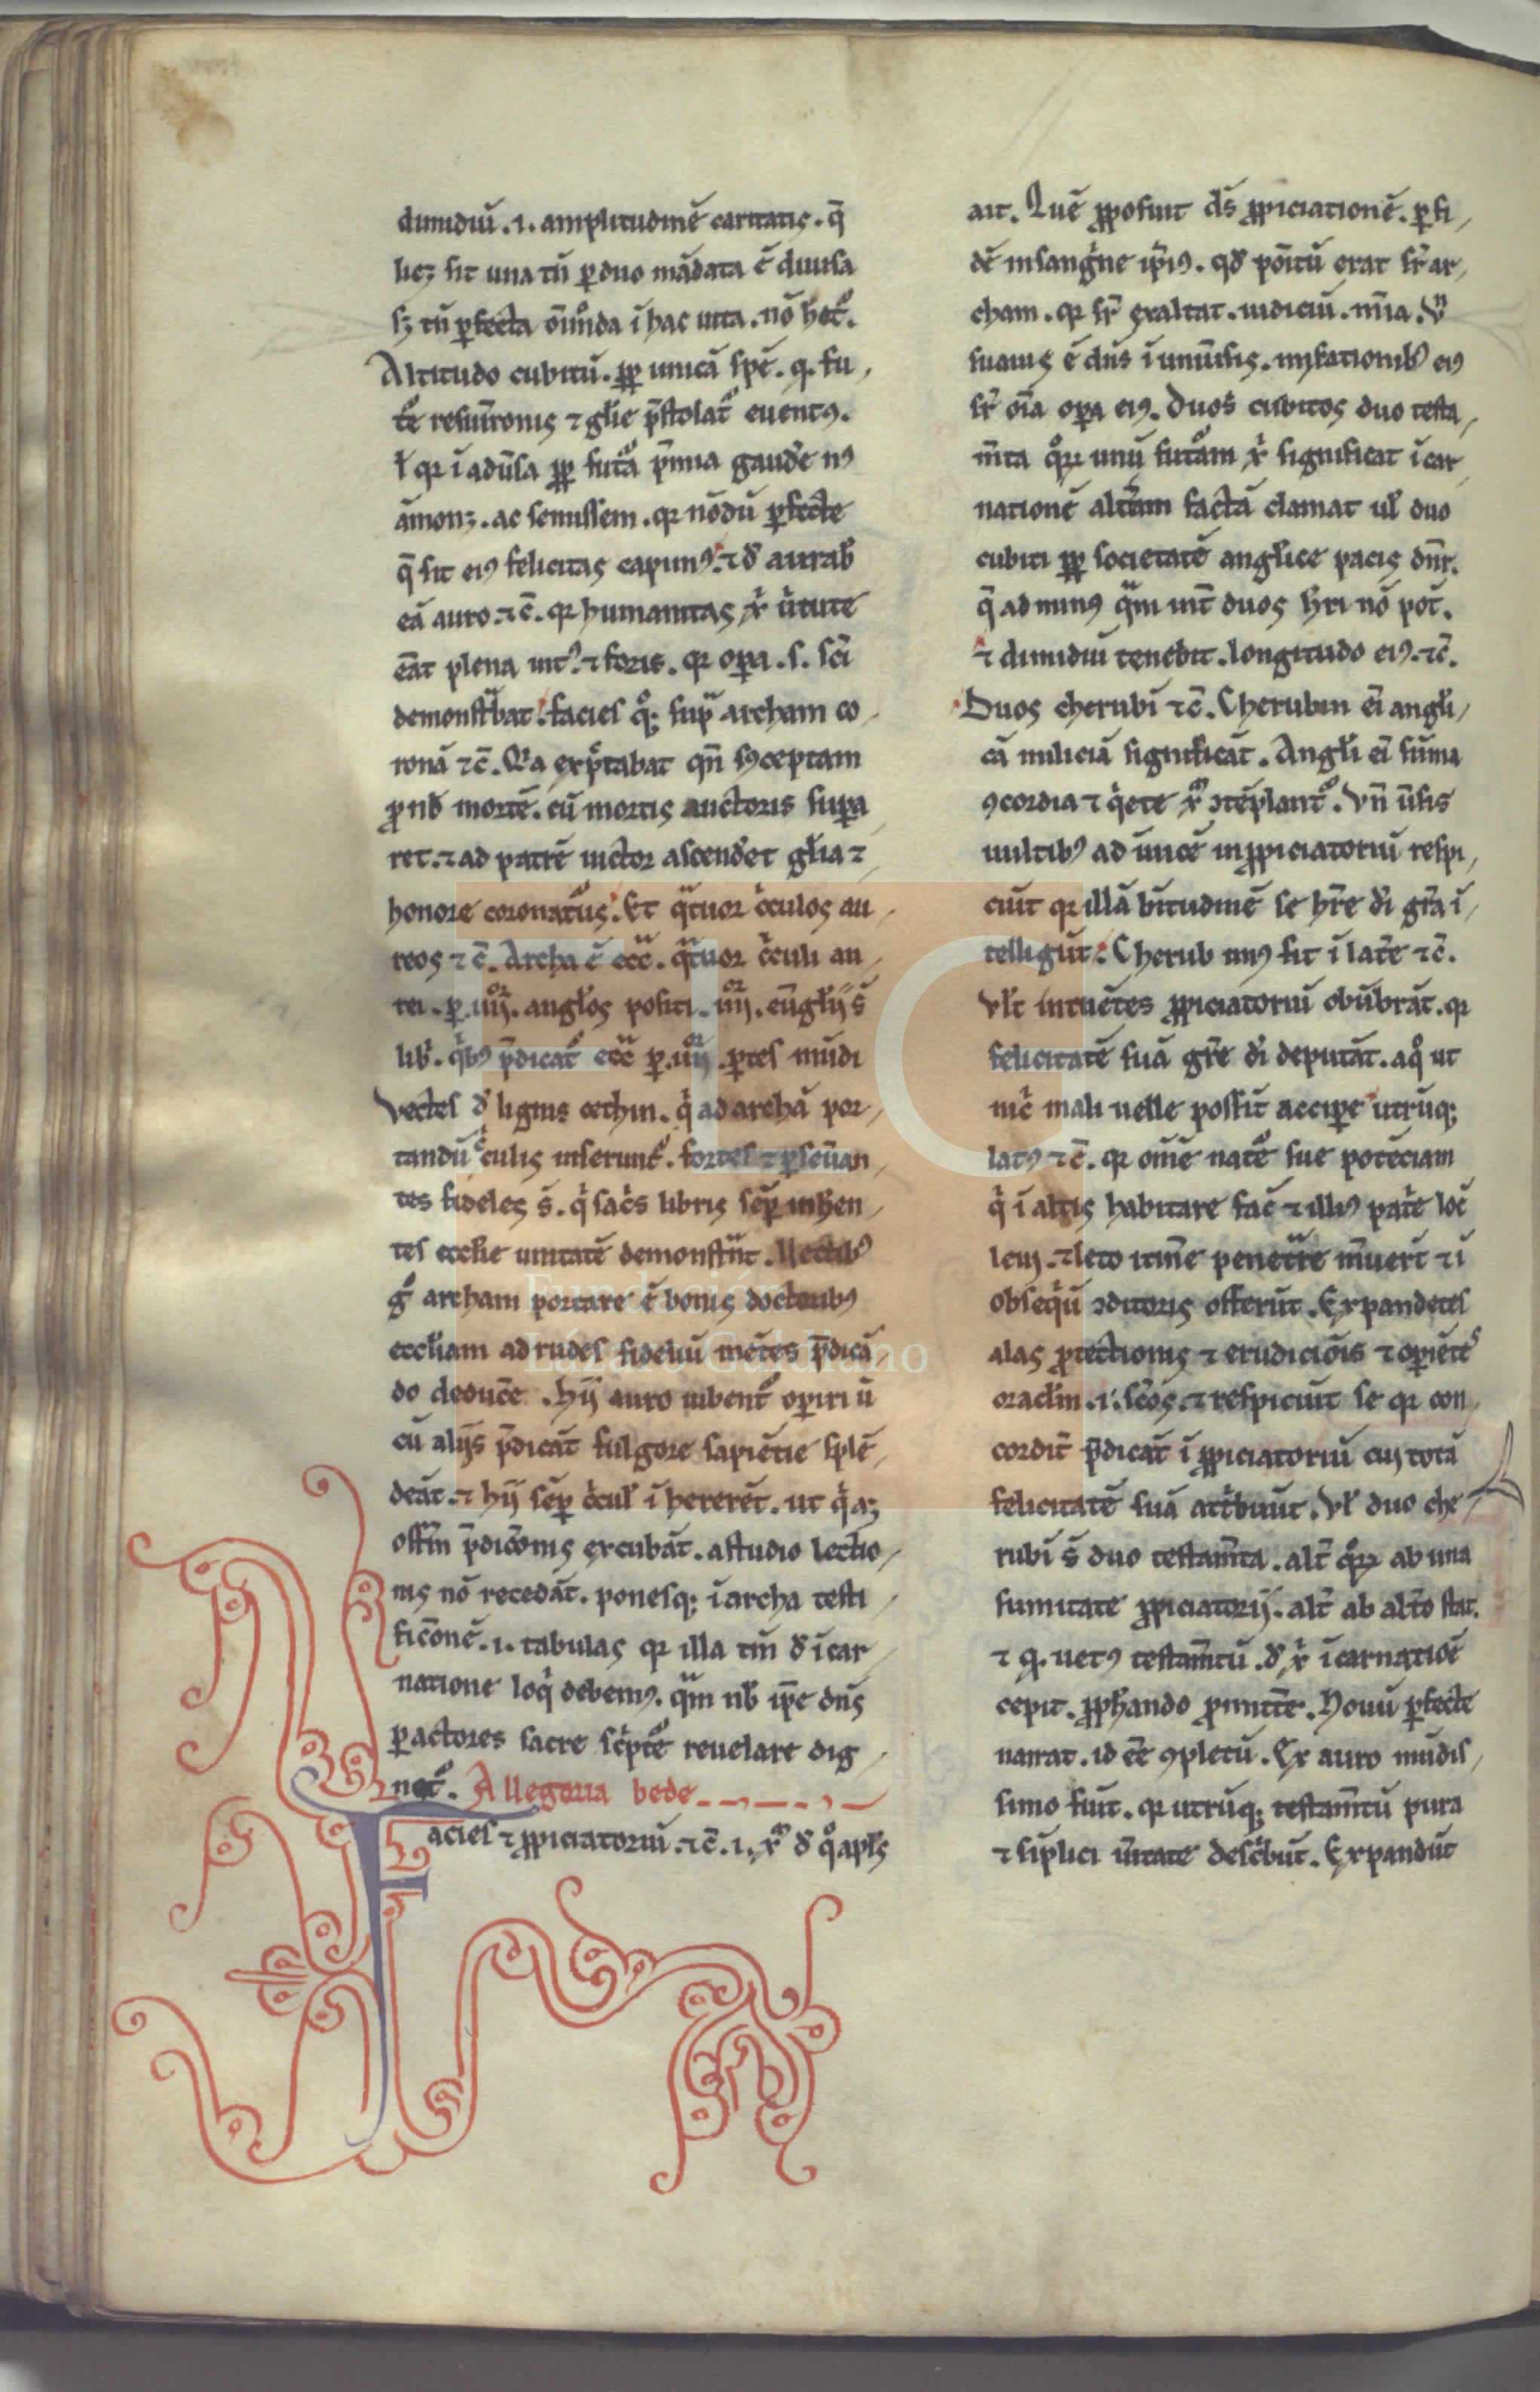 dimidiū .i. amplitudinē caritatis. q̄
licꝫ sit una tn̄ ꝑ duo mādata ē diuisa
sꝫ tn̄ ꝑfecta om̄moda ī hac uita. nō het᷑.
Altitudo cubitū. ꝓp̄ unicā spē. q. fu
te resurr̄onis ⁊ glīe p̄stolat᷑ euentꝰ.
ł qr ī adūsa ꝓp̄ futa p̄mia gaudē nꝰ
āmonꝫ. ac semissem. qr nōdū ꝑfecte
q̄ sit eiꝰ felicitas capimꝰ. ⁊ d̄ aurab̄
eā auro. ⁊ c̄. qr humanitas xp̄i ūtute
erat plena intꝰ. ⁊ foris. qr oꝑa. s. sc̄i
demonstrabat. facies qꝫ supra archam co
ronā ⁊ c̄. Qa expctabat qn̄ sꝰceptam
ꝓ nob̄ mortē. cū mortis auctoris supa
ret. ⁊ ad patrē uictor ascend̄et glīa ⁊
honore coronatus. Et qatuor c̓culos au
reos ⁊ c̄. Archa ē ecca. qatuor c̓culi au
rei. ꝑ .iiij. anglos positi. iiij. eūglij s̄
lib̓. qibꝰ p̄dicat᷑ ecca ꝑ .iiij. ꝑtes mūdi
Vectes d̄ lignis cethim. qi ad archā por
tandū c̓culis inserunt᷑. fortes ⁊ ꝑseūan
tes fideles s̄. qi sac̓s libris semꝑ inh̄en
tes eccłie unitatē demonstrant. Vectibꝰ
g̊ archam portare ē bonis doctoribꝰ
eccłiam ad rudes fideliū mētes p̄dicā
do deduc̄e. Hij auro iubent᷑ oꝑiri ū
cū alijs p̄dicāt fulgore sapiētie splē
deāt. ⁊ hij semꝑ c̓cul̄ ī hererēt. ut qi aꝫ
offm̄ p̄dicōnis excubāt. a studio lectio
nis nō recedāt. ponesqꝫ ī archa testi
ficōnē .i. tabulas qr illa tm̄ d̄ īcar
natione loqi debemꝰ. qam nob̄ ip̄e dn̄s
ꝑ actores sacre sc̓pte reuelare dig
net᷑. Allegoria bede
Facies ⁊ ꝓpiciatoriū. ⁊ c̄. i. xp̄m d̄ qo apłs
ait. Quē ꝓposuit ds̄ ꝓpiciationē. ꝑ fi
dē in sangine ip̄iꝰ. qd̄ poitū erat sr̄ ar
cham. qr sr̄ exaltat. iudiciū. mīa. Vn̄
suauis ē dn̄s ī uniūsis. misationibꝰ eiꝰ
sr̄ oīa oꝑa eiꝰ. Duos cubitos duo testa
mta qorꝝ unū futam xp̄i significat īcar
nationē altam factā clamat ul̄ duo
cubiti ꝓp̄ societatē anglice pacis dn̄r.
q̄ ad minꝰ qam int̄ duos h̄ri nō pot̄.
⁊ dimidiū tenebit. longitudo eiꝰ. ⁊ c̄.
Duos cherubī ⁊ c̄. Cherubin eī angłi
cā miliciā significāt. Angłi eī sūma
ꝯcordia ⁊ qiete xp̄m ꝯtēplant᷑. Vn̄ ūsis
uultibꝰ ad inuicē in ꝓpiciatoriū respi
ciūt qr illā b̄itudinē se h̄re dī gr̄a ī
telligūt. Cherub unꝰ sit ī latē ⁊ c̄.
Vł intuētes ꝓpiciatoriū obūbrāt. qr
felicitatē suā gr̄e dī deputāt. a qo ut
nic̄ mali uelle possit acciꝑe utrūqꝫ
latꝰ ⁊ c̄. qr oīmē natē sue potēciam
qi ī altis habitare fac̄ ⁊ illiꝰ patie loc̄
leuj. ⁊ leto itin̄e penetrare m̄uer̄t ⁊ ī
obseqiū ꝯditoris offerūt. Expandētes
alas ꝓtectionis ⁊ erudiciōis ⁊ oꝑiētes
oracłm .i. sc̄os. ⁊ respiciūt se qr con
corditē p̄dicāt ī ꝓpiciatoriū cuj totā
felicitatē suā attibuūt. Vł duo che
rubī s̄ duo testamta. alt̄ qorꝝ ab una
sumitate ꝓpiciatorij. alt̄ ab alto stat.
⁊ q. uetꝰ testamtū. d̄ xp̄i īcarnatiōē
cepit. ꝓph̄ando ꝓmittē. Nouū ꝑfecte
narrat. id ēē ꝯpletū. Ex auro mūdis
simo fiūt. qr utrūqꝫ testamtū pura
⁊ siplici uitate desc̓būt. Expandūt
Fundación
Lázaro Galdiano